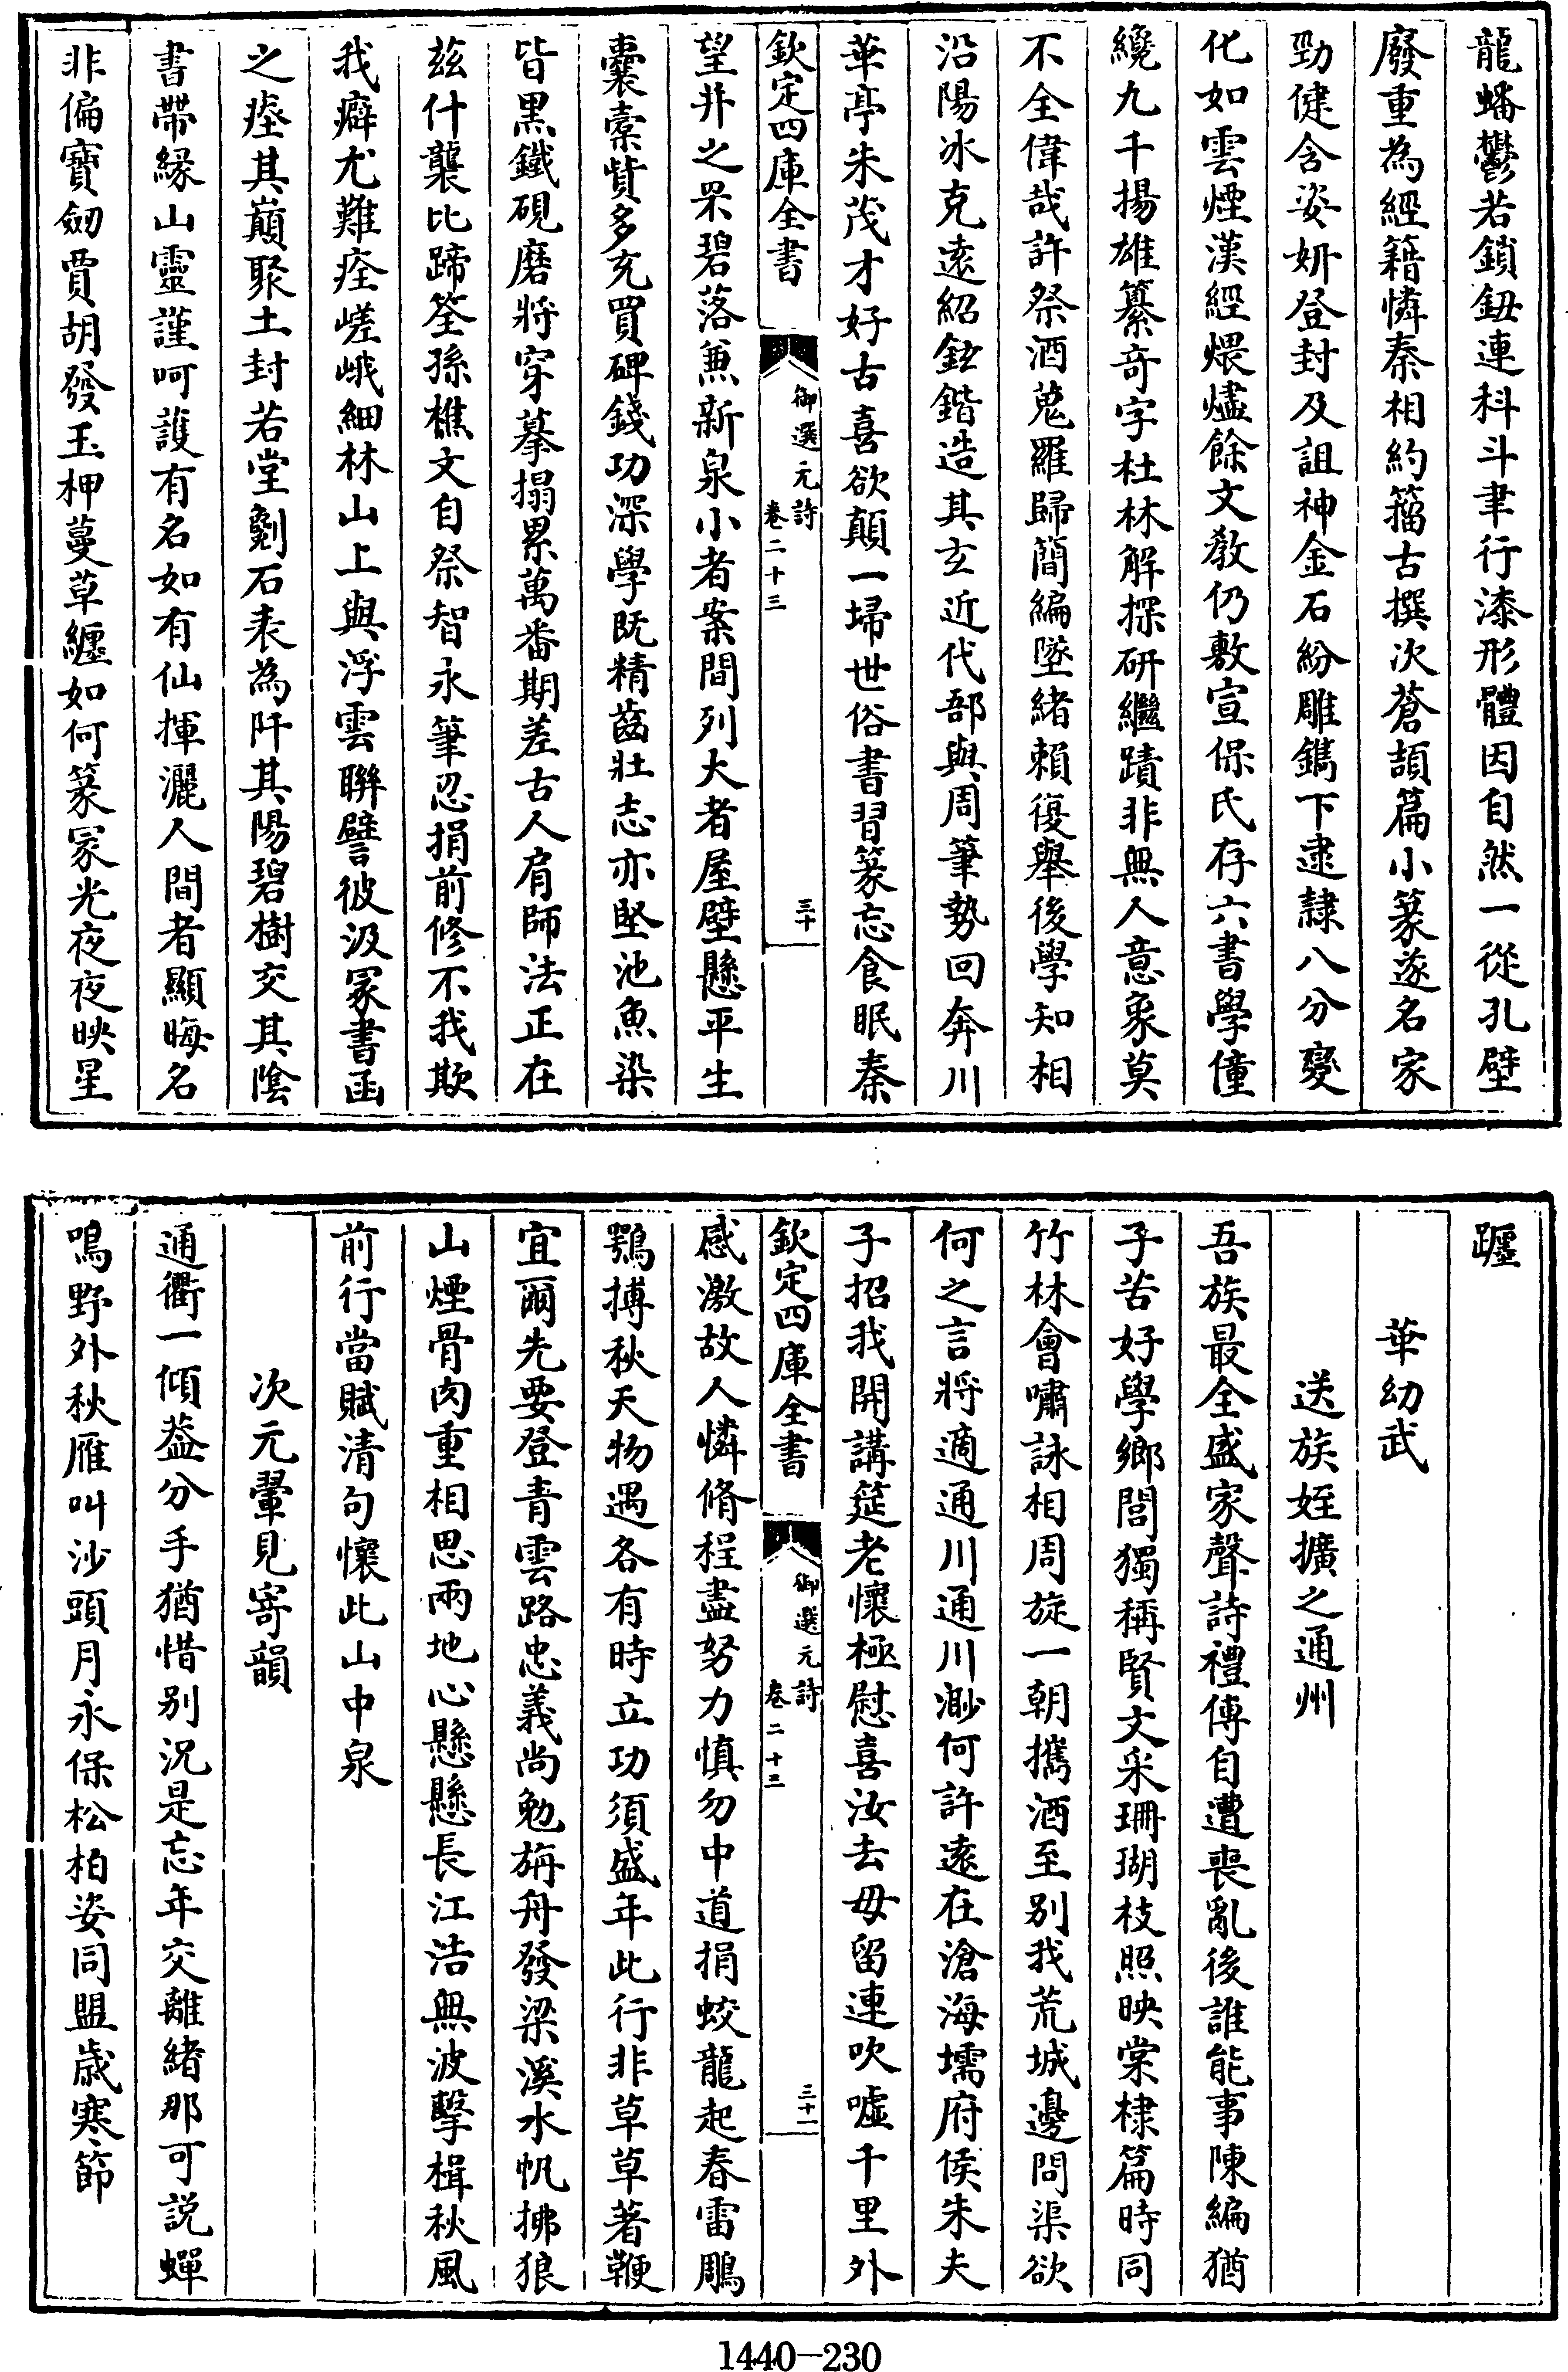 龍蟠鬱若鎖鈕連科斗聿行漆形體因自然一從孔壁
廢重為經籍憐秦相約籀古撰次蒼頡篇小篆遂名家
勁健含姿妍登封及詛神金石紛雕鐫下逮隸八分變
化如雲煙漢經煨燼餘文教仍敷宣保氏存六書學僮
纔九千揚雄纂奇字杜林解探研繼蹟非無人意象莫
不全偉哉許祭酒蒐羅歸簡編墜緒賴復舉後學知相
沿陽冰克遠紹鉉鍇造其玄近代郚與周筆勢回奔川
華亭朱茂才好古喜欲顛一埽世俗書習篆忘食眠秦
欽定四庫全書
御選元詩
卷二十三
三十
望幷之罘碧落兼新泉小者案間列大者屋壁懸平生
囊橐貲多充買碑錢功深學既精齒壯志亦堅池魚染
皆黑鐵硯磨將穿摹搨累萬番期差古人肩師法正在
茲什襲比蹄筌孫樵文自祭智永筆忍捐前修不我欺
我癖尤難痊嵯峨細林山上與浮雲聯譬彼汲冢書函
之瘞其巔聚土封若堂劖石表為阡其陽碧樹交其陰
書帶緣山靈謹呵護有名如有仙揮灑人間者顯晦名
非偏寶劒賈胡發玉柙蔓草纏如何篆冢光夜夜映星
躔
華幼武
送族姪擴之通州
吾族最全盛家聲詩禮傳自遭喪亂後誰能事陳編猶
子苦好學鄉閭獨稱賢文采珊瑚枝照映棠棣篇時同
竹林會嘯詠相周旋一朝攜酒至别我荒城邊問渠欲
何之言將適通川通川渺何許遠在滄海壖府侯朱夫
子招我開講筵老懷極慰喜汝去毋留連吹噓千里外
欽定四庫全書
御選元詩
卷二十三
三十一
感激故人憐脩程盡努力慎勿中道捐蛟龍起春雷鵰
鶚搏秋天物遇各有時立功須盛年此行非草草著鞭
宜爾先要登青雲路忠義尚勉旃舟發梁溪水帆拂狼
山煙骨肉重相思兩地心懸懸長江浩無波擊楫秋風
前行當賦清句懷此山中泉
次元翬見寄韻
通衢一傾葢分手猶惜别況是忘年交離緒那可説蟬
鳴野外秋雁叫沙頭月永保松柏姿同盟歲寒節
1440—230